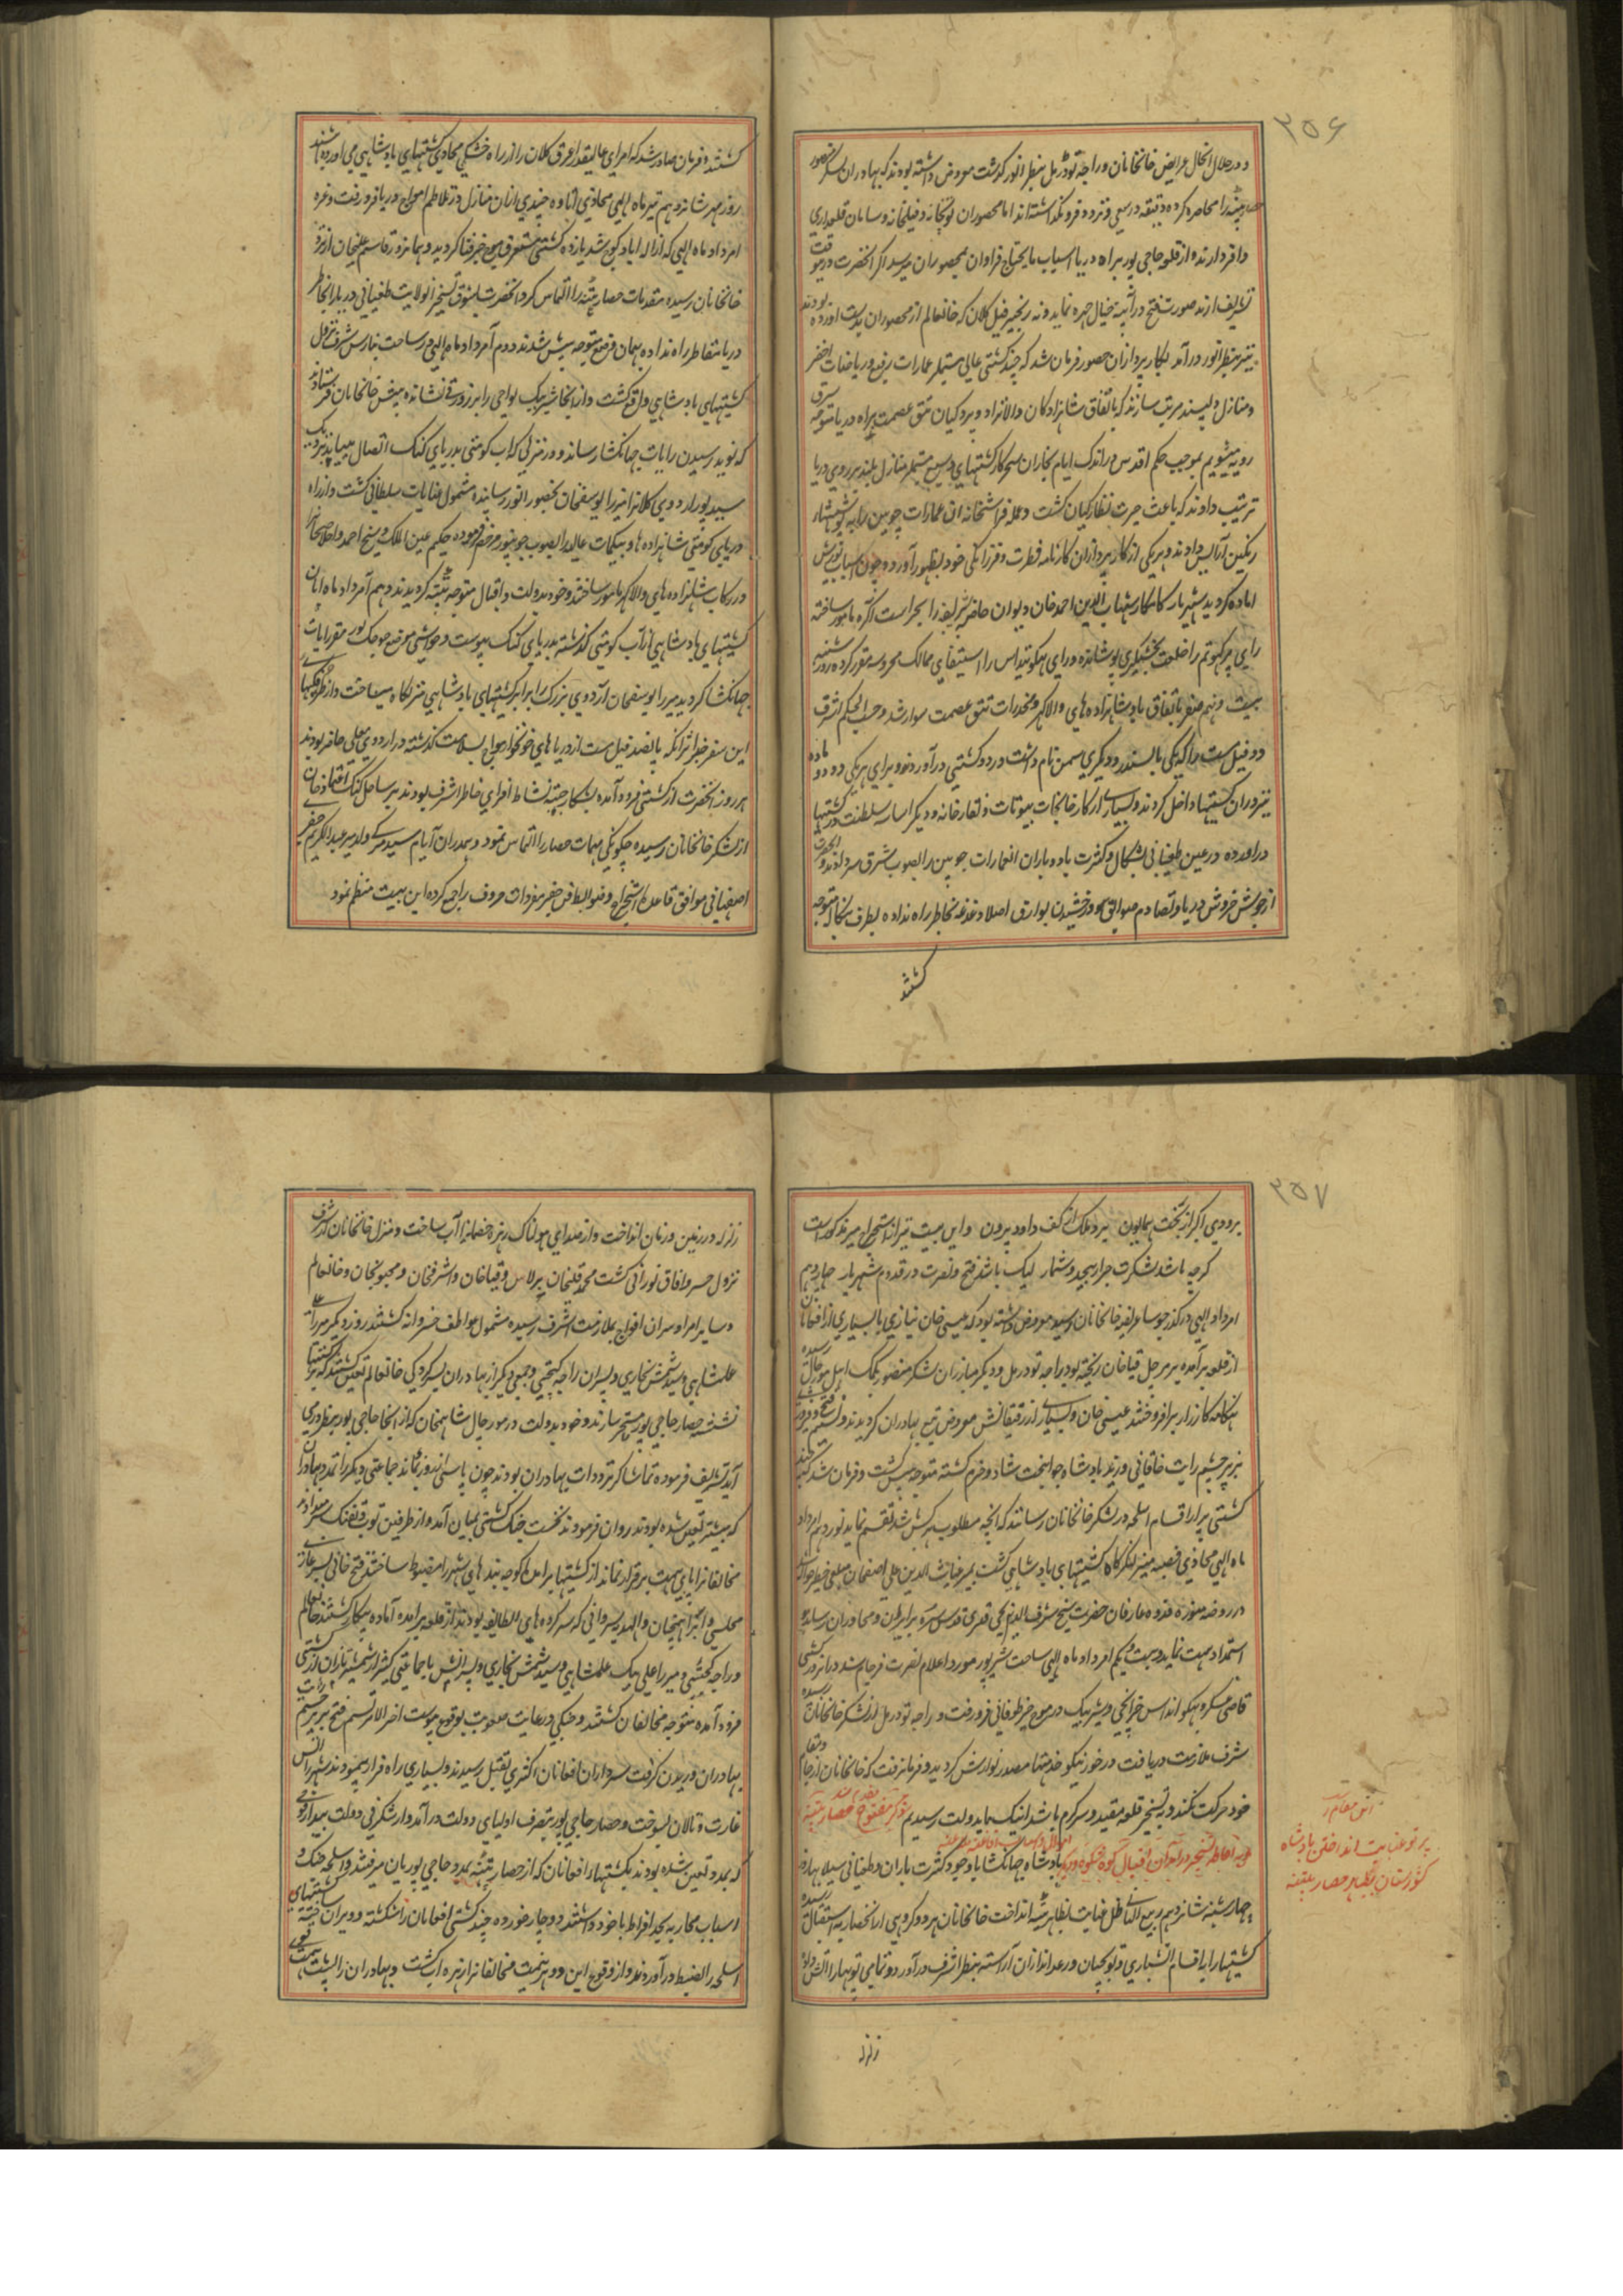 ۲۵۶
و در خلال انحال عرایض خانخانان و راجه تودرمل بنظر انور گذشت معروض داشته بودند که بهادران لشکر منصور
حصار پتنه را محاصره کرده دقیقه در سعی و تردد فرو نگذاشته اند اما محصوران توپخانه و فیلخانه و سامان قلعداری
وافر دارند و از قلعه حاجی پور براه دریا اسباب مایحتاج فراوان بمحصوران میرسد اگر آنحضرت درین وقت
تشریف ارند صورت فتح در آئینه خیال چهره نماید و نه زنجیر فیل کلان که خانعالم از محصوران بدست اورده بودند
نیز بنظر انور درآمد بکارپردازان حضور فرمان شد که چند کشتی عالی مشتمل عمارات رفیع و ریاضات اخضر
و منازل دلپسند مرتب سازند که باتفاق شاهزادکان والانژاد و پردکیان تتق عصمت براه دریا متوجه شرق
رویه میشویم بموجب حکم اقدس در اندک ایام نجاران سحرکار کشتیهای وسیع مشتمل منازل بلند بر روی دریا
ترتیب دادند که باعث حیرت نظارکیان گشت و عمله فراشخانه ان عمارات چوبین را به پوششهاء
رنگین آرایش دادند و هر یکی از کارپردازان کارنامه فطرت و فرزانگی خود بظهور آورد و چون اسباب یورش
اماده گردید شهریار کامکار شهاب الدین احمد خان دیوان خاصه شریفه را بحراست آگره مامور ساخته
رای پرکهوتم را خلعت بخشیگری پوشانیده و رای بهکونتداس را استیفای ممالک محروسه مقرر کرده روز شنبه
بیست و نهم صفر باتفاق پادشاهزاده های والاگهر و مخدرات تتق عصمت سوار شد و حسب الحکم اشرف
دو فیل مست را که یکی بالسندر و دیگری سمن نام داشت در دو کشتی درآوردند و برای هر یکی دو دو ماده
نیز دران کشتیها داخل کردند و بسیاری از کارخانجات بیوتات و نقارخانه و دیگر اساسه سلطنت در کشتیها
درامده در عین طغیانی بشکال و کثرت باد و باران انعمارات چوبین را بصوب شرق سر دادند و آنحضرت
از جوش خروش دریا و تصادم صواعق و درخشیدن بوارق اصلا دغدغه بخاطر راه نداده بطرف بنگاله متوجه
گشتند
گشتند و فرمان صادر شد که امرای عالیقدر اعرق کلان را از راه خشکی محاذی کشتیهای بادشاهی می اورده باشند
روز مهر شانزدهم تیر ماه الهی محاذی اتاوه چندی ازان منازل در تلاطم امواج دریا فرو رفت و غره
امرداد ماه الهی که از اله اباد کوچ شد یازده کشتی مستغرق موج خیز فنا گردید و همانروز قاسم علیخان از نزد
خانخانان رسیده مقدمات حصار پتنه را التماس کرد آنحضرت بشوق تسخیر آنولایت طغیانی دریا را بخاطر
دریا مقاطر راه نداده بهمان فرح متوجه پیش شدند دوم آمرداد ماه الهی در ساحت بنارس شرف نزول
کشتیهای بادشاهی واقع گشت و از انجا شیر بیک تواجی را بر زورقی نشانده پیش خانخانان فرستاد
که نوید رسیدن رایات جهانکشا رساند و در منزلی که اب کومتی بدریای کنک اتصال مییابد نزدیک
سیدپور اردوی کلانرا میرزا یوسفخان بحضور انور رسانیده مشمول عنایات سلطانی گشت و از راه
دریای کومتی شاهزاده ها و بیکمات عالیقدر را بصوب جونپور مرخص فرموده حکیم عین الملک و شیخ احمد و اخلاصخان
در رکاب شاهزاده های والاگهر مامور ساختند و خود بدولت و اقبال متوجه پتنه گردیدند دهم آمرداد ماه ابان
کشتیهای بادشاهی از آب کومتی گذشته بدریای کنک پیوست و حواشی موضع چوجک پور مقر رایات
جهانکشا گردید میرزا یوسفخان آردوی بزرک را برابر کشتیهای بادشاهی منزلگاه میساخت و از شکرفیهای
این سفر خطر اثر آنکه پانصد فیل مست از دریاهای خونخوار مواج بسلامت گذشته در اردوی معلی حاضر بودند
هر روز آنحضرت از کشتی فرود آمده بشکار چیته نشاط افزای خاطر اشرف بودند بر ساحل کنک اعتماد خان
از لشکر خانخانان رسیده چگونگی مهمات حصار را التماس نمود و بهمدران آیام سید میرکی ولد میر عبدالکریم جعفر
اصفهانی موافق قاعده استخراج و ضوابط فن جفر مفردات حروف را جمع کرده این بیت منظم نمود
۲۵۷
بزودی اکبر از تخت همایون برد ملک از کف داود بیرون و این بیت نیز از استخراج میر مذکور است
گرچه باشد لشکرت جرار بیحد و شمار لیک باشد فتح و نصرت در قدوم شهریار چهاردهم
امرداد الهی در گذر چوسا عرایض خانخانان رسید معروض داشته بود که عیسی خان نیازی با بسیاری از افغانان
از قلعه برآمده بر مورچل قیاخان ریخته بود راجه تودرمل و دیگر مبارزان لشکر منصور بکمک اهل مورچال رسیده
هنگامه کارزار برافروختند عیسی خان و بسیاری از رفیقانش معروض تیغ بهادران گردیدند و نسیم فتح و فیروزی
بر پرچم رایت خاقانی وزید بادشاه جوانبخت شاد و خرم گشته متوجه پیش گشت و فرمان شد که چند
کشتی پر از اقسام اسلحه در لشکر خانخانان رسانند که آنچه مطلوب هر کس باشد تقسیم نماید نوزدهم امرداد
ماه الهی محاذی قصبه منیر لنگرگاه کشتیهای بادشاهی گشت میر غیاث الدین علی اصفهان مبلغی خطیر حواله
در روضه منوره قدوه عارفان حضرت شیخ شرف الدین یحیی قدس سره برده بزایران و مجاوران رسانیده
استمداد همت نماید بیست و یکم امرداد ماه الهی ساحت شیرپور مورد اعلام نصرت فرجام شد درانروز کشتی
قاضی عسکر و بهکوانداس خزانچی و شیر بیک در موج خیز طوفانی فرو رفت و راجه تودرمل از لشکر خانخانان رسیده
شرف ملازمت دریافت در خور نیکو خدمتیها مصدر نوازش گردید و فرمان رفت که خانخانان از جا و مقام
خود حرکت نکند و به تسخیر قلعه مقید و سرگرم باشد اینک ما بدولت رسیدیم ذکر مفتوح شدن حصار پتنه
بادشاه جهانکشا با وجود کثرت باران و طغیانی سیلابها روز
چهارشنبه شانزدهم ربیع الثانی ظل عنایت بظاهر پتنه انداخت خانخانان بر دو کروهی از انحصار به استقبال رسیده
کشتیها را باقسام اتشبازی و توپچیان و رعداندازان آراسته بنظر اشرف درآورد و تمامی توپها را آتش داده
پرتو عنایت انداختن بادشاه
کشورستان بظاهر حصار پتنه
زلزله
زلزله در زمین و زمان انداخت و از صدای هولناک زهره خصمانرا آب ساخت و منزل خانخانان از شرف
نزول خسرو افاق نورانی گشت محمد قلیخان برلاس و قیاخان و اشرفخان و مجنونخان و خانعالم
و سایر امرا و سران افواج بملازمت اشرف رسیده مشمول عواطف خسروانه گشتند روز دیگر میرزا علی
علمشاهی و سید شمس بخاری و پسران راجه کجپتی و جمعی دیگر از بهادران بسرکردگی خانعالم تعین گشتند که بر کشتیها
نشسته حصار حاجی پور مسخر سازند و خود بدولت در مورچال شاهمخان که از انجا حاجی پور بنظر در می
آید تشریف فرموده تماشاگر ترددات بهادران بودند چون پاسی از روز بماند جماعتی دیگر را بمدد بهادران
که پیشتر تعین شده بودند روان فرمودند نخست جنک کشتی بمیان آمد و از طرفین توپ و تفنگ سر دادند
مخالفانرا پای همت برقرار نماند از کشتیها برامده کوچه بندهای شهر را مضبوط ساختند فتح خانی
مجلسی و ابراهیم خان و الهداد سروانی که سرکرده های الطایفه بودند از قلعه برامده آماده پیکار گشتند خانعالم
و راجه کجپتی و میرزا علی بیک علمشاهی و سید شمس بخاری و پسرانش با جماعتی کثیر از شمشیربازان از کشتی
فرود آمده متوجه مخالفان گشتند و جنگی در غایت صعوبت بوقوع پیوست اخر الامر نسیم فتح بر پرچم رایات
بهادران وزیدن گرفت سرداران افغانان اکثری بقتل رسیدند و بسیاری راه فرار پیمودند شهر را اتش
غارت و تالان بسوخت و حصار حاجی پور بتصرف اولیای دولت درآمد و از شگرفی دولت بیدار فوجی
که بمدد تعین شده بودند بکشتیهاء افغانان که از حصار پتنه بمدد حاجی پوریان میرفتند و اسلحه جنک و
اسباب محاربه بحد افراط با خود داشتند دوچار خورده چند کشتی افغانان را شکسته و ویران ساخته کشتیهای
اسلحه را بضبط درآوردند و از وقوع این دو هزیمت مخالفانرا زهره اب گشت و بهادران را پشت همت قوی